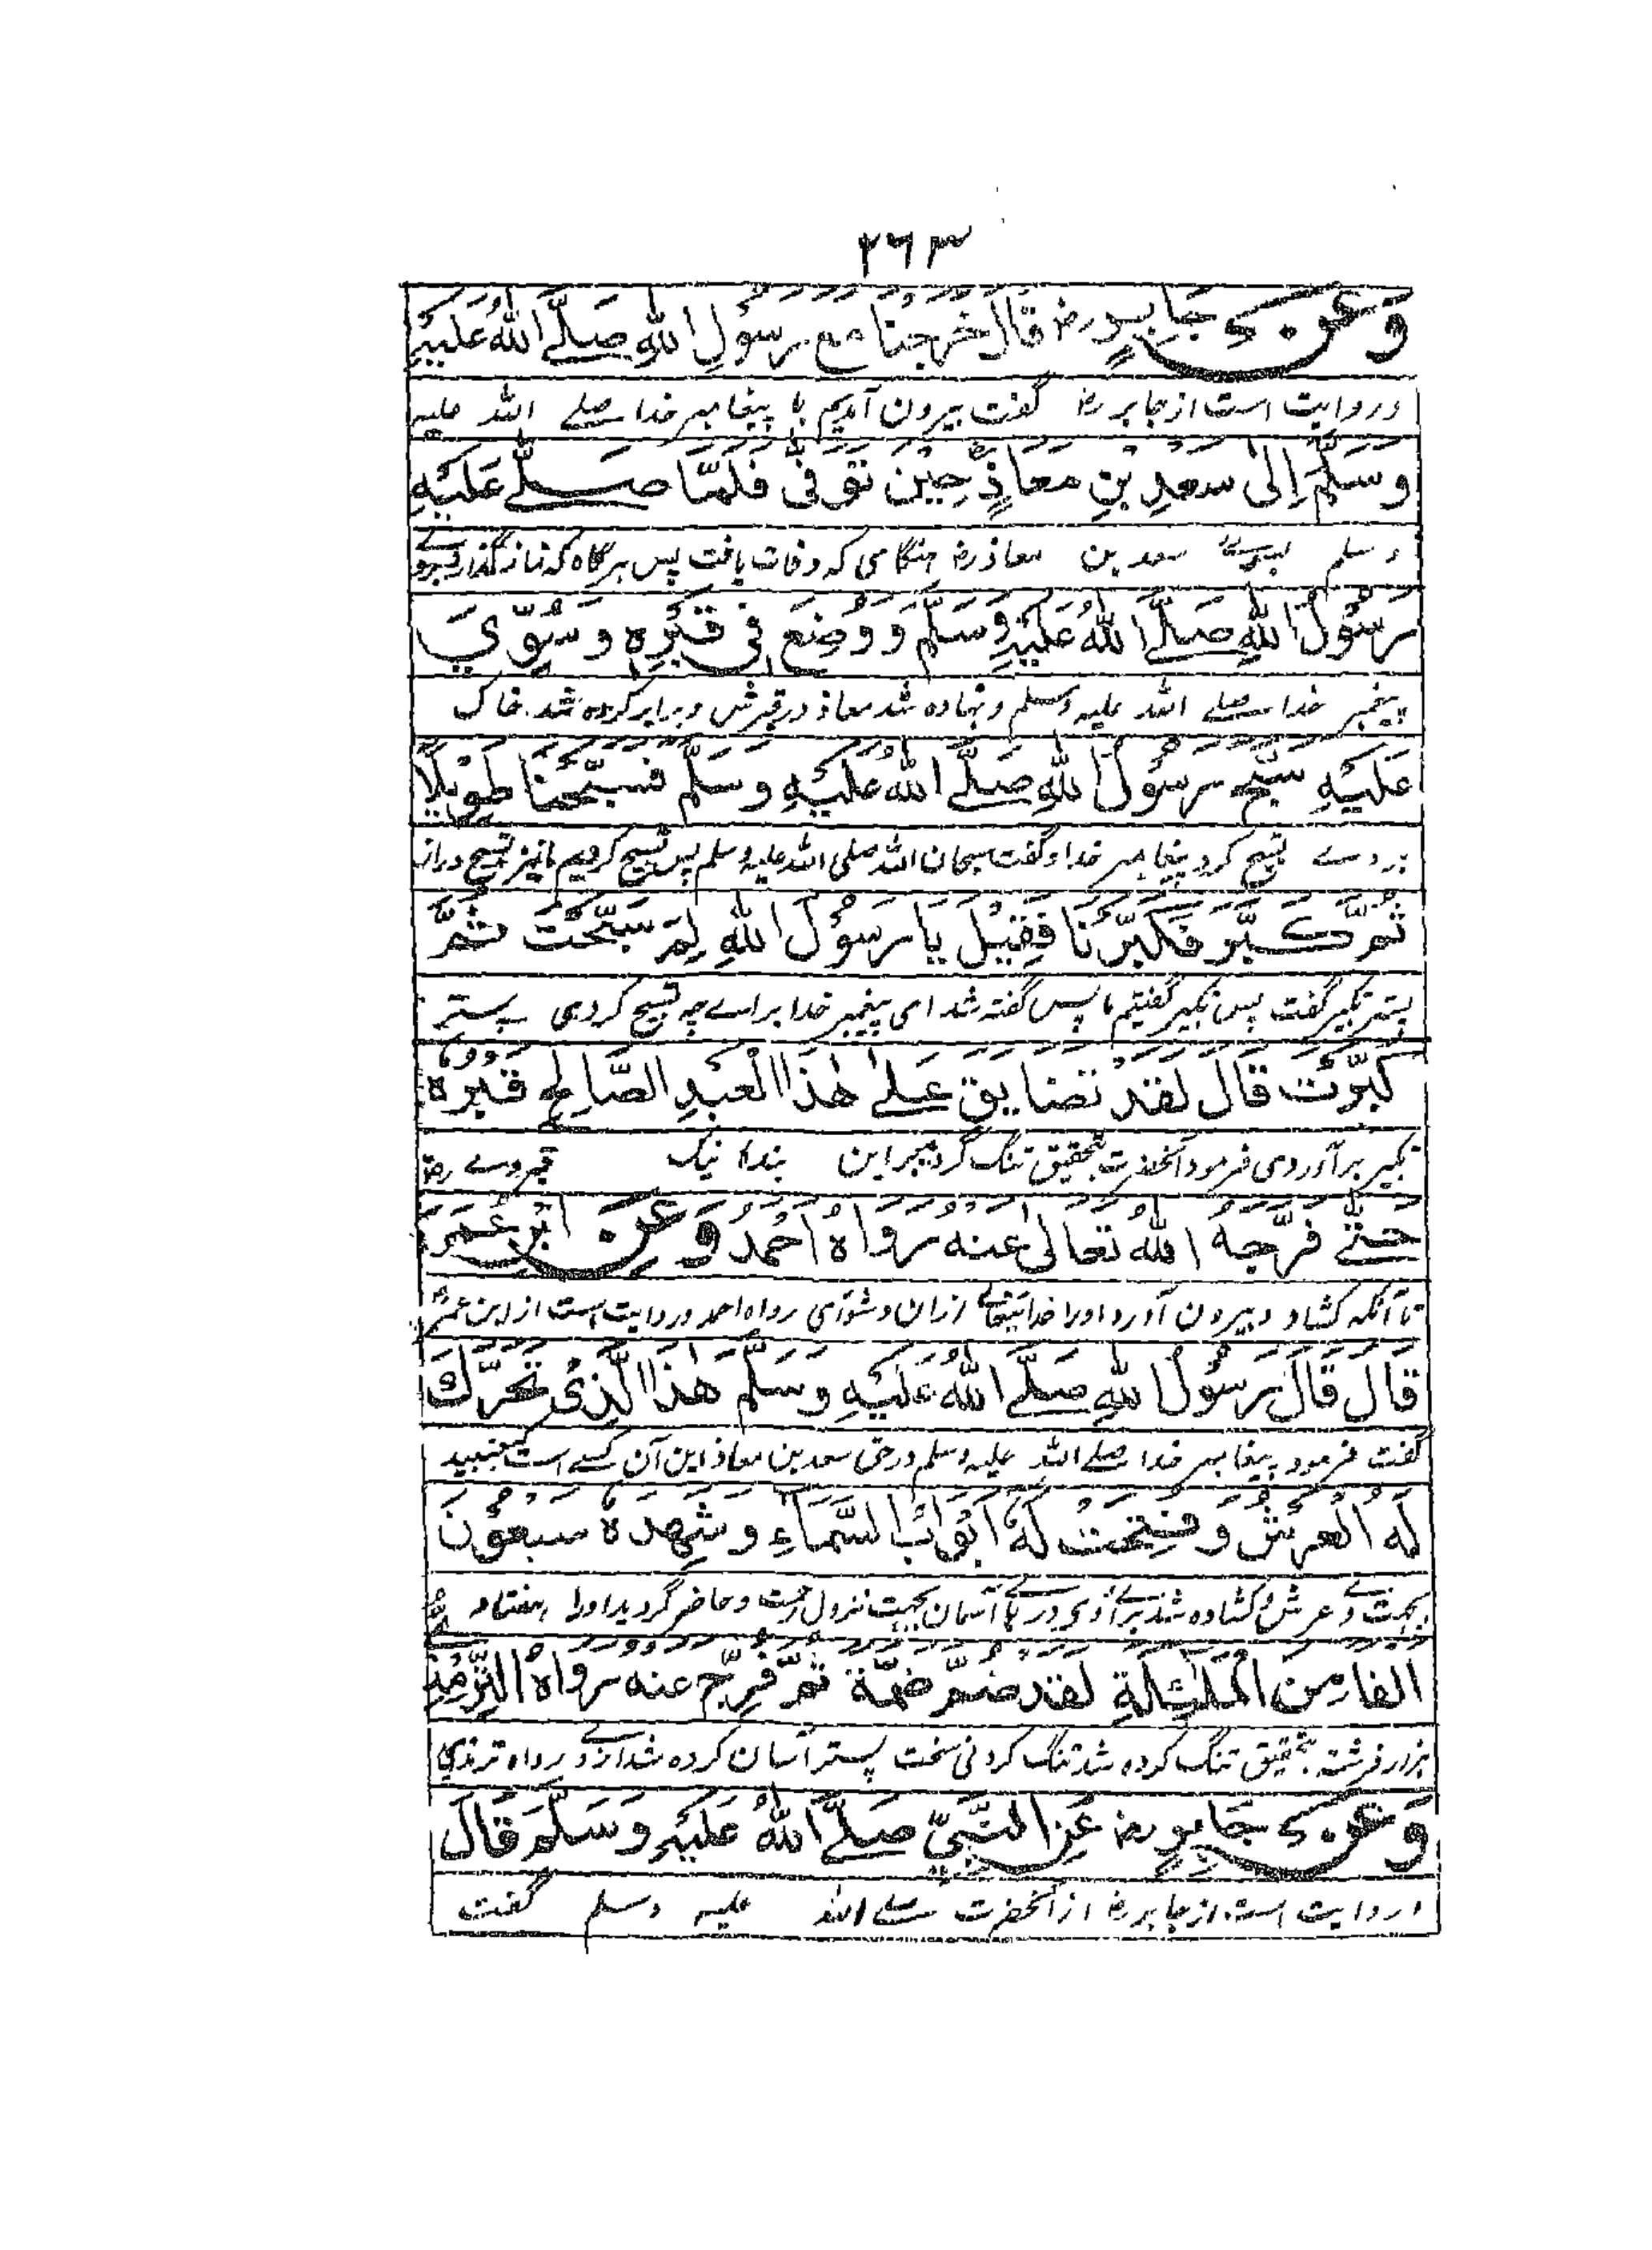 ۲۶۳
وَعَنْ جَابِرٍ رض قَالَ خَرَجْنَا مَعَ رَسُوْلِ اللّٰهِ صَلَّے اللّٰهُ عَلَيْهِ
و روایت است از جابر رض گفت بیرون آمدیم با پیغامبر خدا صلے اللہ علیہ
وَسَلَّمَ إِلٰى سَعْدِ بْنِ مَعَاذٍ رض حِيْنَ تُوَفِّىَ فَلَمَّا صَلّٰے عَلَيْهِ
وسلم بسوے سعد بن معاذ رض هنگامی که وفات یافت پس هرگاه که نماز گذارد برو
رَسُوْلُ اللّٰهِ صَلَّے اللّٰهُ عَلَيْهِ وَسَلَّمَ وَوُضِعَ فِي قَبْرِهِ وَسُوِّيَ
پیغمبر خدا صلے اللہ علیہ وسلم و نهاده شد معاذ در قبرش و برابر کرده شد خاک
عَلَيْهِ سَبَّحَ رَسُوْلُ اللّٰهِ صَلَّے اللّٰهُ عَلَيْهِ وَسَلَّمَ فَسَبَّحْنَا طَوِيْلًا
بروے تسبیح کرد پیغامبر خدا و گفت سبحان اللہ صلی اللہ علیہ وسلم پس تسبیح کردیم ما نیز تسبیح دراز
ثُمَّ كَبَّرَ فَكَبَّرْنَا فَقِيْلَ يَا رَسُوْلَ اللّٰهِ لِمَ سَبَّحْتَ ثُمَّ
پستر تکبیر گفت پس تکبیر گفتیم ما پس گفته شد ای پیغمبر خدا براے چه تسبیح کردی پستر
كَبَّرْتَ قَالَ لَقَدْ تَضَايَقَ عَلٰے هٰذَا الْعَبْدِ الصَّالِحِ قَبْرُهُ
تکبیر برآوردی فرمود آنحضرت بتحقیق تنگ گردید بر این بنده نیک قبر وے رض
حَتّٰے فَرَّجَهُ اللّٰهُ تَعَالٰى عَنْهُ رَوَاهُ اَحْمَدُ وَعَنْ ابْنِ عُمَرَ
تا آنکه کشاد و بیرون آورد او را خدایتعالے ازان دشواری رواه احمد و روایت است از ابن عمر
قَالَ قَالَ رَسُوْلُ اللّٰهِ صَلَّے اللّٰهُ عَلَيْهِ وَسَلَّمَ هٰذَا الَّذِيْ تَحَرَّكَ
گفت فرمود پیغامبر خدا صلے اللہ علیہ وسلم در حق سعد بن معاذ این آن کسے است که بجنبید
لَهُ الْعَرْشُ وَفُتِحَتْ لَهُ اَبْوَابُ السَّمَاءِ وَشَهِدَهُ سَبْعُوْنَ
بجهت وے عرش و کشاده شد براے او درہاے آسمان بجہت نزول رحمت و حاضر گردید او را هفتاد
اَلْفًا مِنَ الْمَلٰئِكَةِ لَقَدْ ضُمَّ ضَمَّةً ثُمَّ فُرِّجَ عَنْهُ رَوَاهُ التِّرْمِذِ
هزار فرشته بتحقیق تنگ کرده شد تنگ کردنی سخت پستر آسان کرده شد ازوے رواه ترمذی
وَعَنْ جَابِرٍ رض عَنِ النَّبِيِّ صَلَّے اللّٰهُ عَلَيْهِ وَسَلَّمَ قَالَ
روایت است از جابر رض از آنحضرت صلے اللہ علیہ وسلم گفت